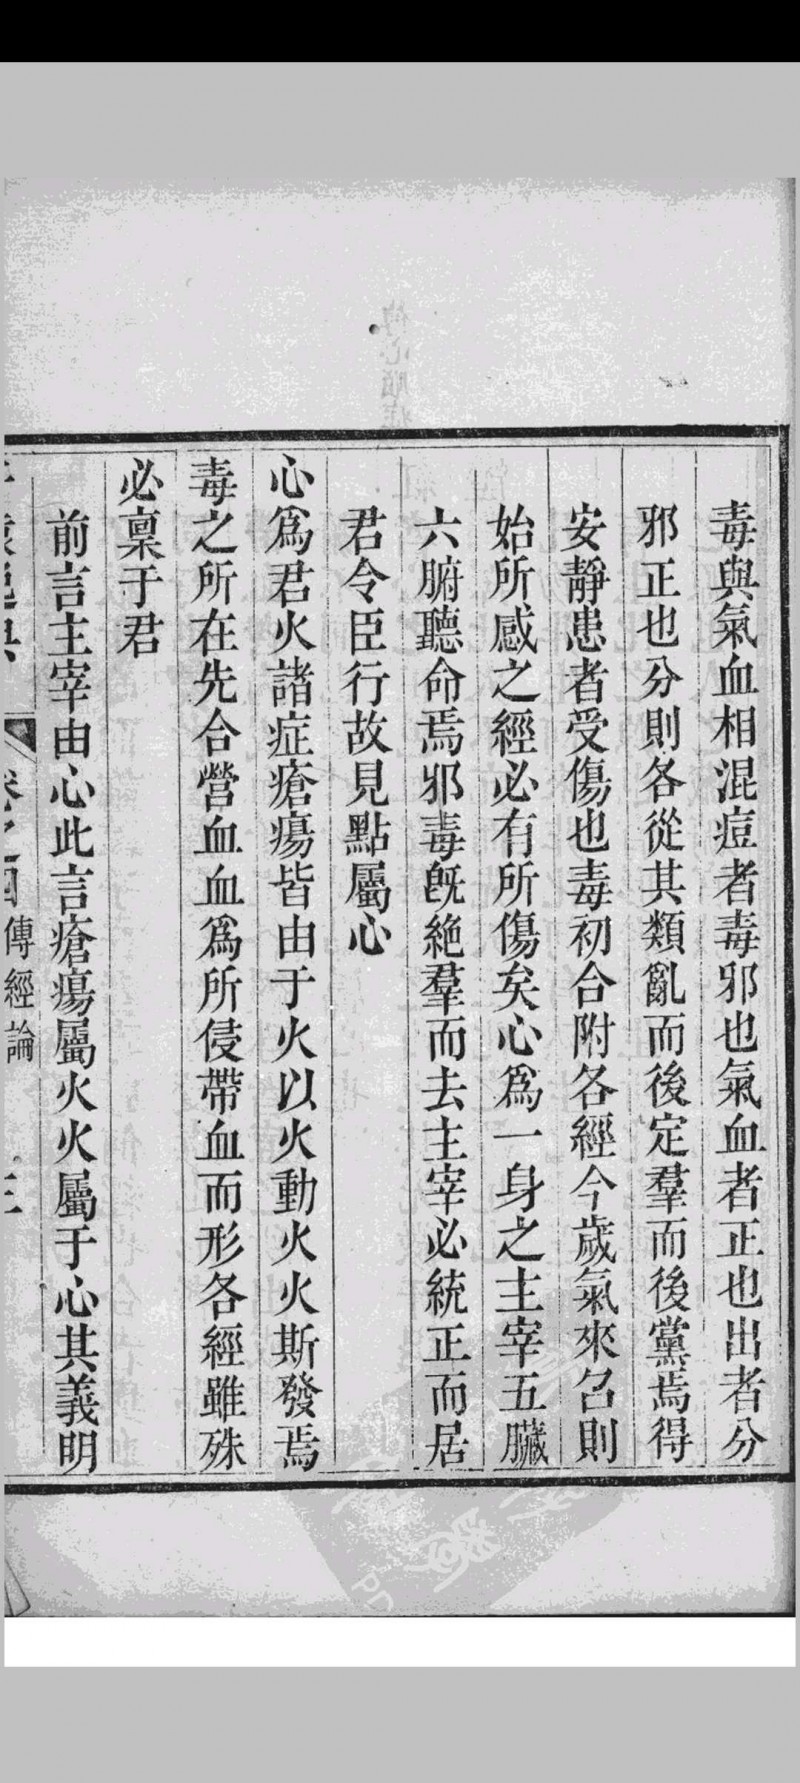 毒與氣血相混痘者毒邪也氣血者正也出者分
邪正也分則各從其類亂而後定羣而後黨焉得
安靜患者受傷也毒初合附各經今歲氣來召則
始所感之經必有所傷矣心爲一身之主宰五臟
六腑聽命焉邪毒旣絶羣而去主宰必統正而居
君令臣行故見點屬心
心爲君火諸症瘡瘍皆由于火以火動火火斯發焉
毒之所在先合營血血爲所侵帶血而形各經雖殊
必稟于君
前言主宰由心此言瘡瘍屬火火屬于心其義明
卷之四 傳經論 三